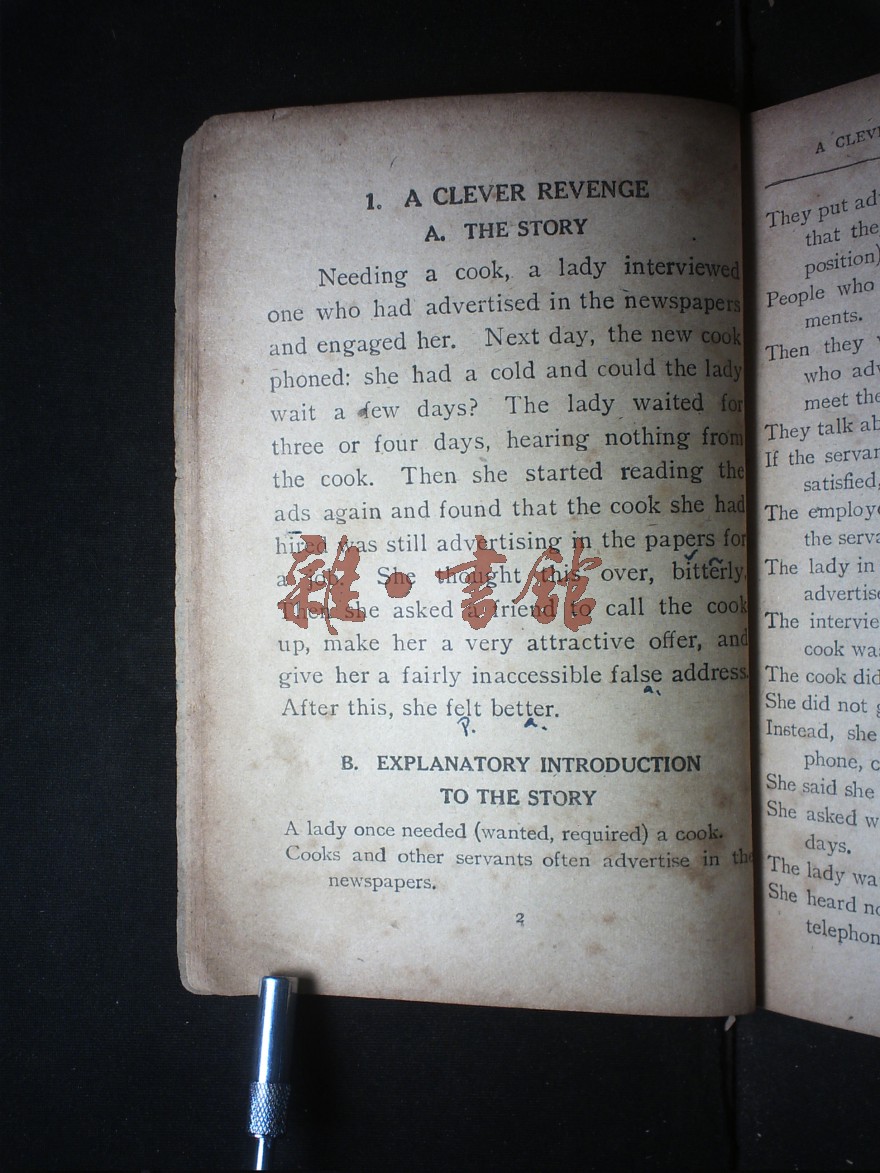 1. A CLEVER REVENGE
A. THE STORY
Needing a cook, a lady interviewed
one who had advertised in the newspapers
and engaged her. Next day, the new cook
phoned: she had a cold and could the lady
wait a few days? The lady waited for
three or four days, hearing nothing from
the cook. Then she started reading the
ads again and found that the cook she had
hired was still advertising in the papers for
a job. She thought this over, bitterly.
Then she asked a friend to call the cook
up, make her a very attractive offer, and
give her a fairly inaccessible false address.
a.
After this, she felt better.
P. a.
B. EXPLANATORY INTRODUCTION
TO THE STORY
A lady once needed (wanted, required) a cook.
Cooks and other servants often advertise in the
newspapers.
2
雜·書館
A
They put
that
position)
People who
ments.
Then they
who
meet
They talk
If the
satisfied,
The
the
The lady in
The
cook
The cook did
She did not
Instead, she
phone,
She said she
She asked
days.
The lady
She heard